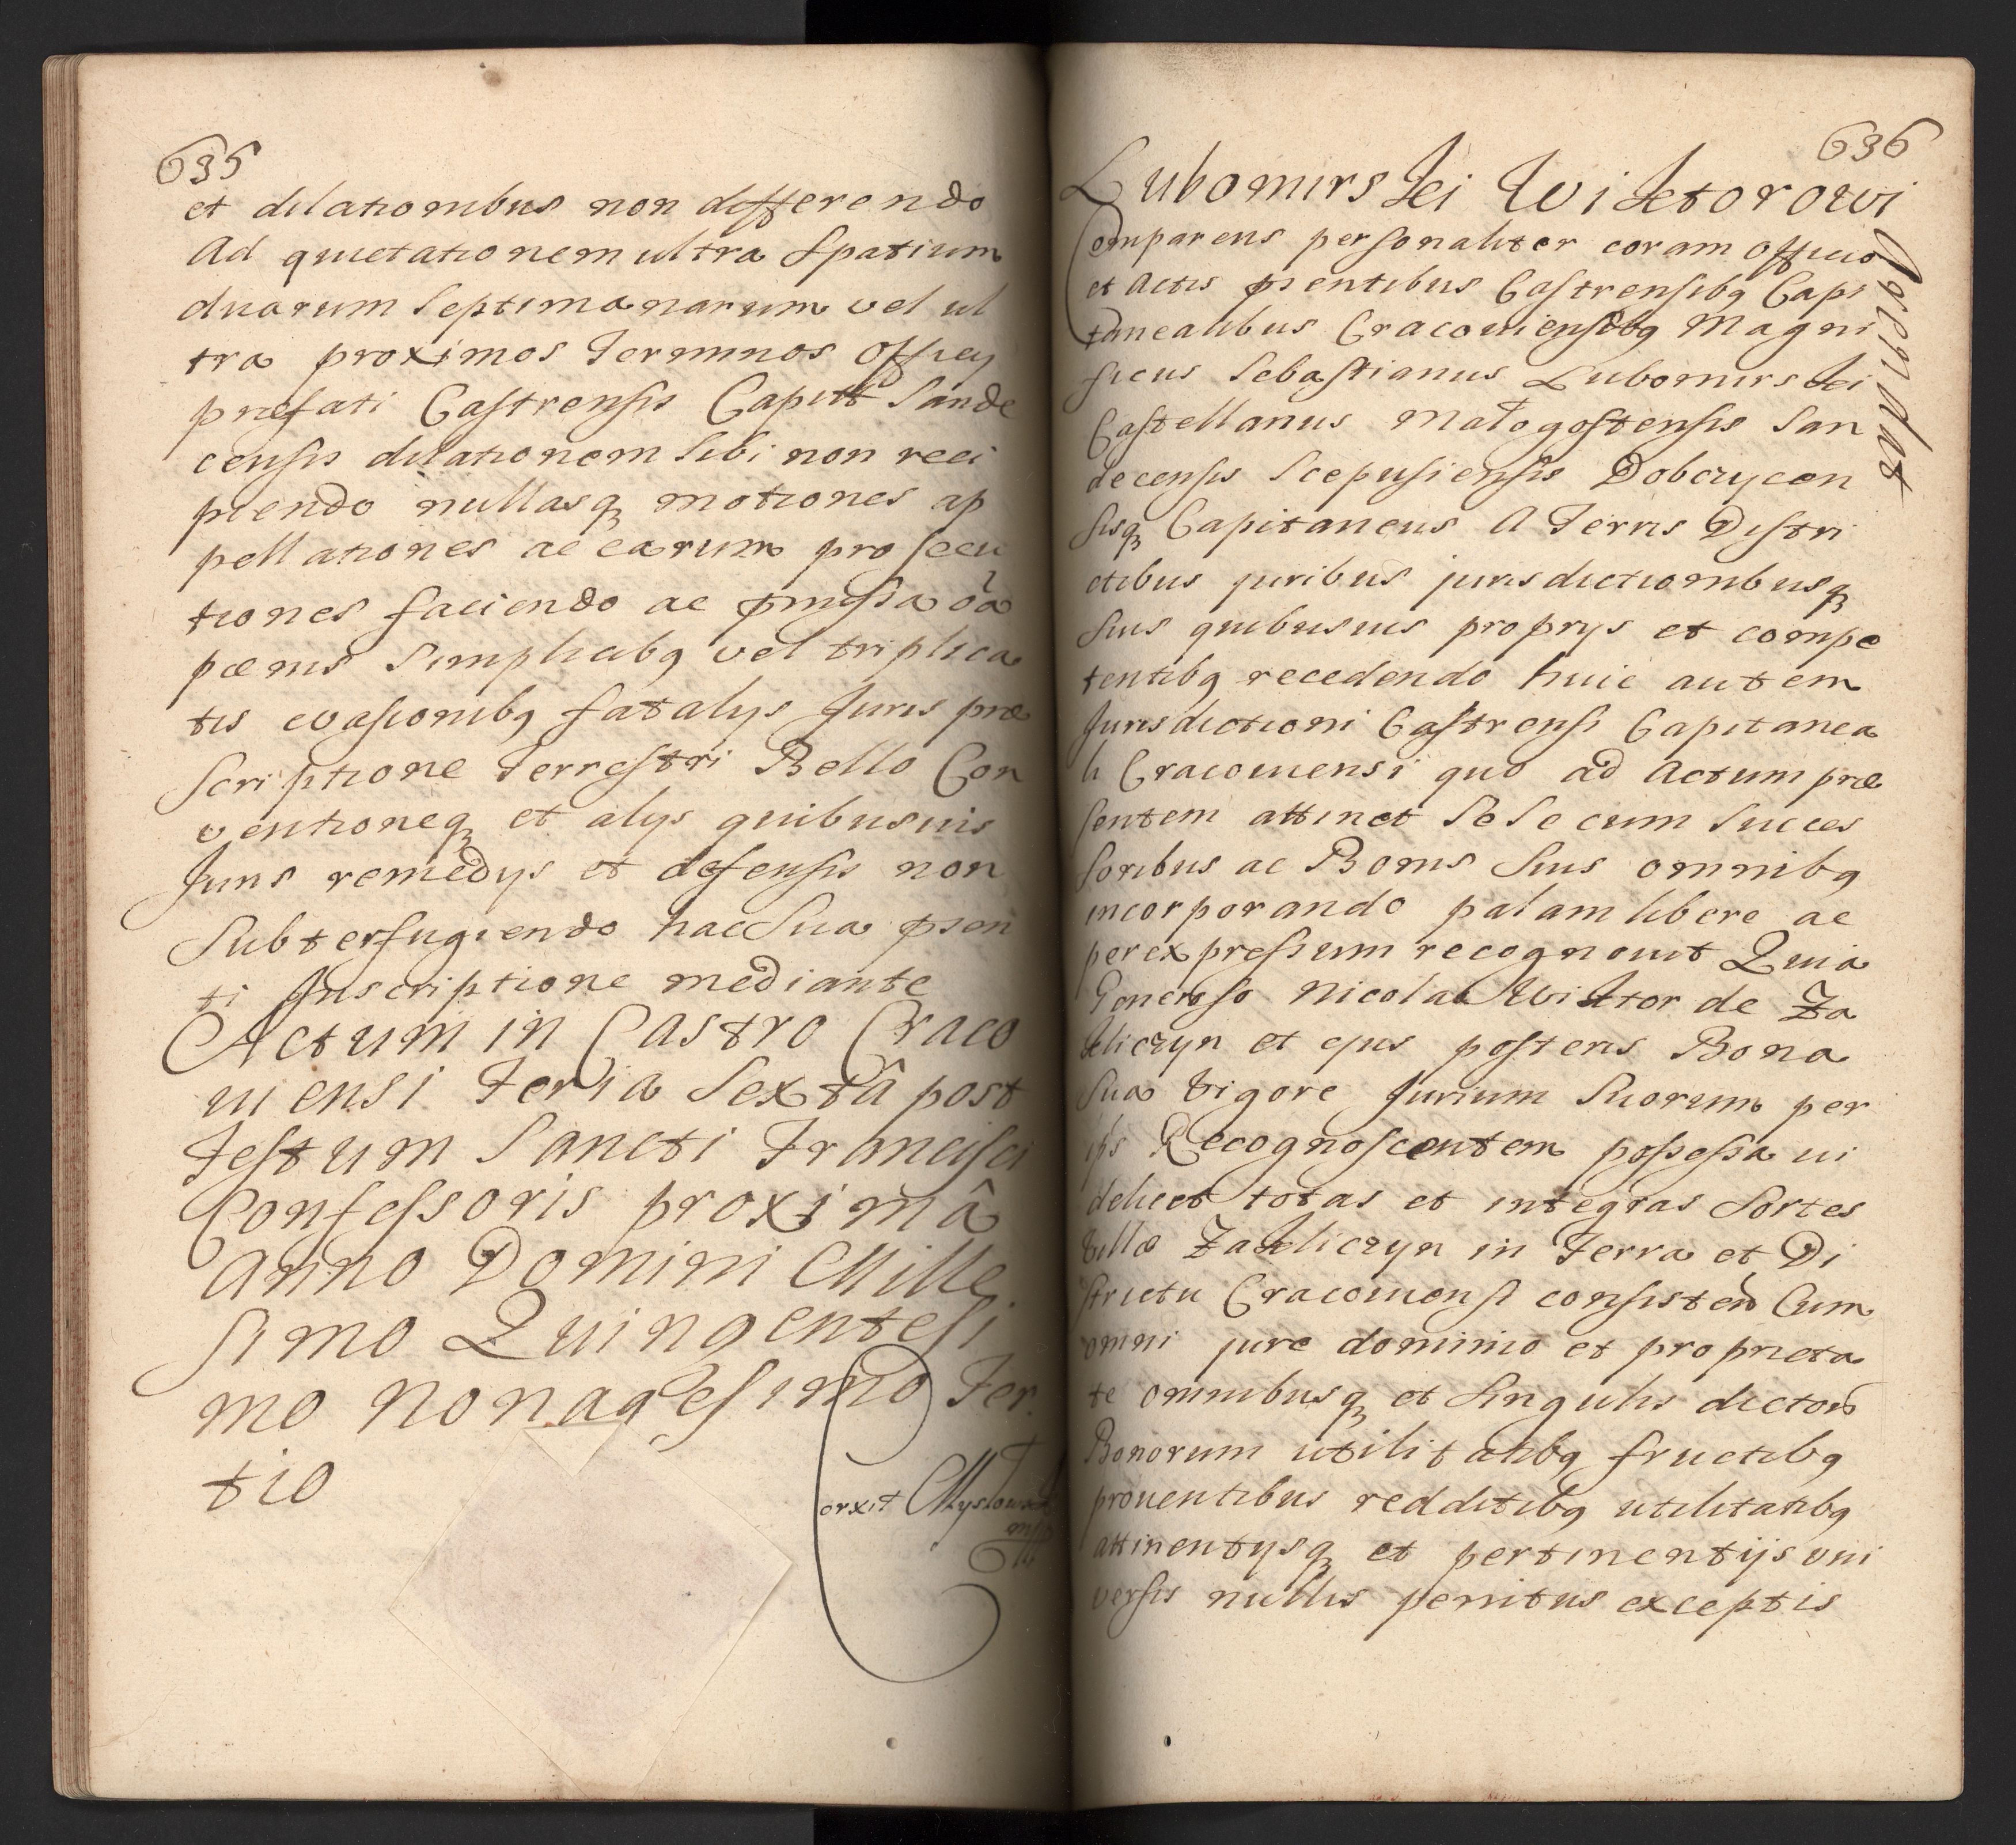 635
et dilationibus non differendo
Ad quietationem ultra Spatium
duarum Septimanarum vel ul
tra proximos Terminos Officy
præfati Castrensis Capitt Sande
censis dilationem Sibi non reci
piendo nullasq motiones ap
pellationes ac earum prosecu
tiones faciendo ac pmissa oâ
pœnis Simplicibq vel triplica
tis evasionibq fatalys Juris præ
scriptione Terrestri Bello Con
ventioneq et alys quibusuis
Juris remedys et defensis non
Subterfugiendo hac Sua psen
ti Inscriptione mediante
Actum in Castro Craco
uiensi Feria Sextâ post
Festum Sancti Francisci
Confessoris proximâ
Anno Domini Mille
simo Quingentesi
mo Nonagesimo Ter
tio
orxit
636
Lubomirskei Wicktorowi
Ascendat
Comparens personaliter coram Officio
et Actis psentibus Castrensibq Capi
taneatibus Cracouiensibq Magni
ficus Sebastianus Lubomirskei
Castellanus Małogostensis San
decensis Scepusiensis Dobczycen
sisq Capitaneus A Terris Distri
ctibus juribus jurisdictionibusq
Suis quibusuis proprys et compe
tentibq recedendo huic autem
Jurisdictioni Castrensi Capitanea
li Cracouiensi quo ad Actum præ
sentem attinet Sese cum Succes
soribus ac Bonis Suis omnibq
incorporando palam libere ac
per expressum recognouit Quia
Generoso Nicolao Wiktor de Za
kliczyn et ejus posteris Bona
Sua Vigore Jurium Suorum per
ips Recognoscentem possessa ui
delicet totas et integras Sortes
Villæ Zakliczyn in Terra et Di
strictu Cracouiensi consisten Cum
omni jure dominio et proprieta
te omnibusq et Singulis dictor
Bonorum utilitatibq fructibq
prouentibus redditibq utilitatibq
attinentysq et pertinentijs uni
versis nullis penitus exceptis